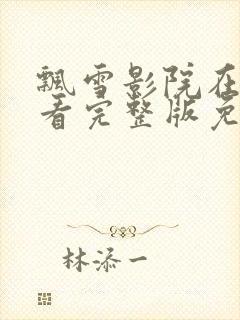 飘雪影院在
看完整版免
林添一